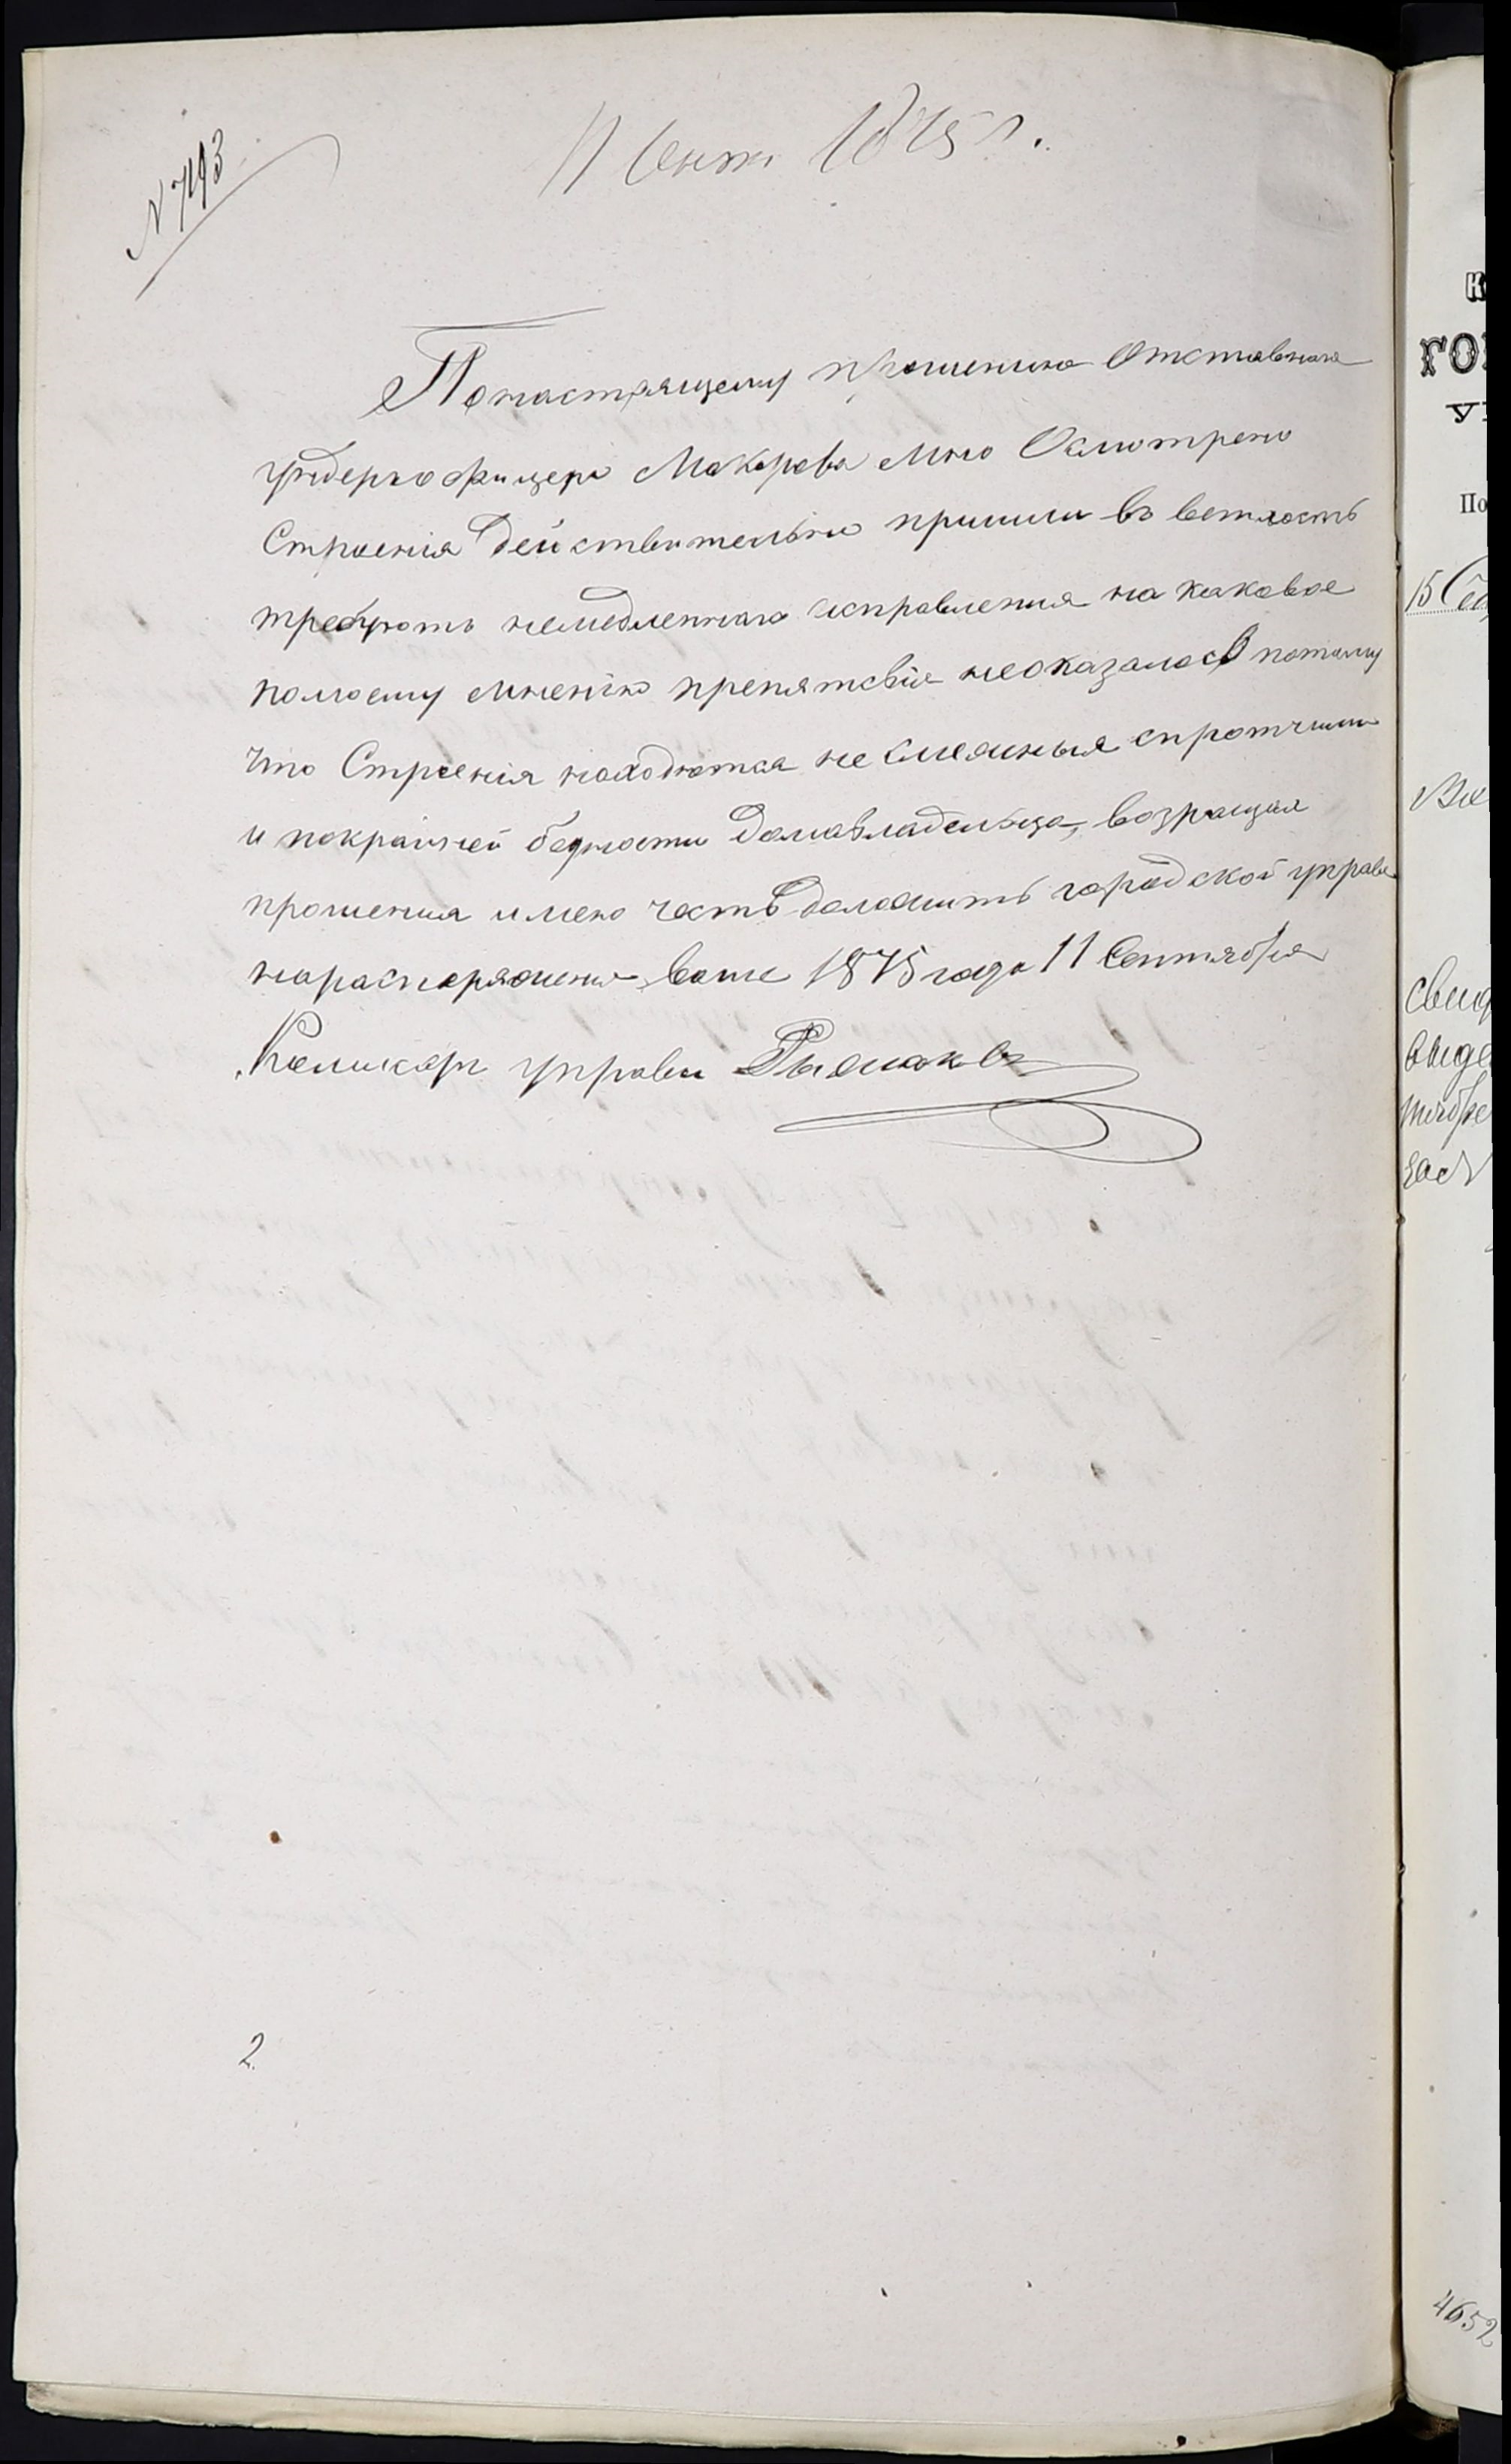 N 7193
11 Сент 1875 г.
Понастоящему прошению Отставнаго
ундерьофицера Макарова мною Осмотрено
Строения действительно пришли въ ветхость
требуютъ немедленнаго исправления на каковое
помоему мнению препятсвие неоказалось потому
что Строения находются не смежныя спротчими
и покрайней бедности домавладельца, возращая
прошения имею честь доложить городской управе
нараспоряжение ваше 1875 года 11 Сентября
Комисаръ управы Рыжаковъ
2
К
ГО
У
По
15 Се
свид
выде
тября
4652